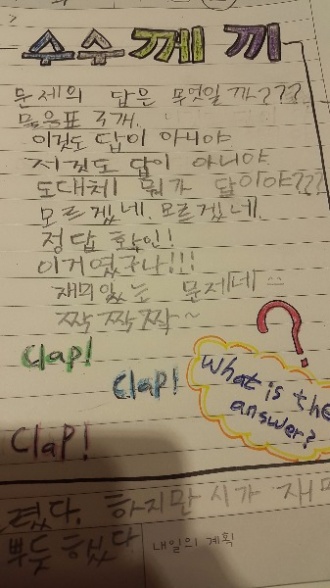 수수께끼
문제의 답은 무엇일까???
물음표 3개.
이것도 답이 아니야
저것도 답이 아니야
도대체 뭐가 답이야???
모르겠네. 모르겠네.
정답 확인!
이거였구나!!!
재미있는 문제네
짝짝짝~
Clap!
Clap!
Clap!
?
What is the
answer?
렸다. 하지만 시가 재미
뿌듯했다
내일의 계획